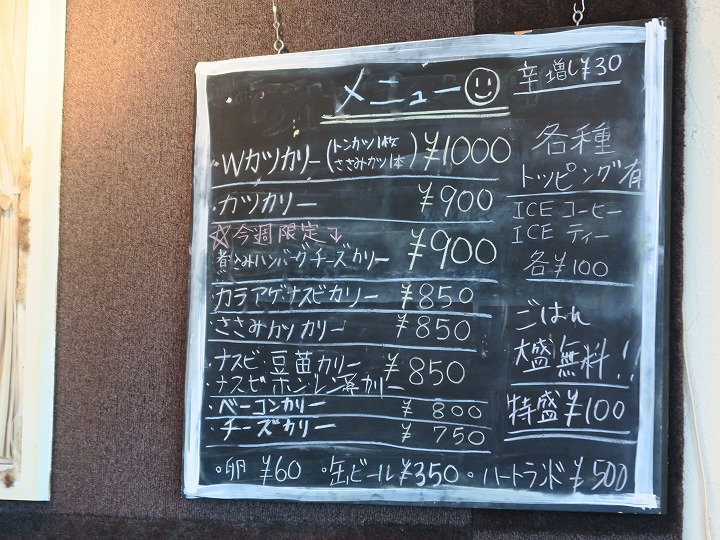 メニュー
・Wカツカリー(トンカツ1枚 ささみカツ1本) ¥1000
・カツカリー ¥900
☆今週限定↓
煮込みハンバーグチーズカリー ¥900
・カラアゲ・ナスビカリー ¥850
・ささみカツカリー ¥850
・ナスビ・豆苗カリー ¥850
・ナスビ・ホーレン草カリー
・ベーコンカリー ¥800
・チーズカリー ¥750
・卵 ¥60 ・缶ビール¥350 ・ハートランド¥500
辛増し¥30
各種
トッピング有
ICE コーヒー
ICE ティー
各¥100
ごはん
大盛無料!!
特盛¥100